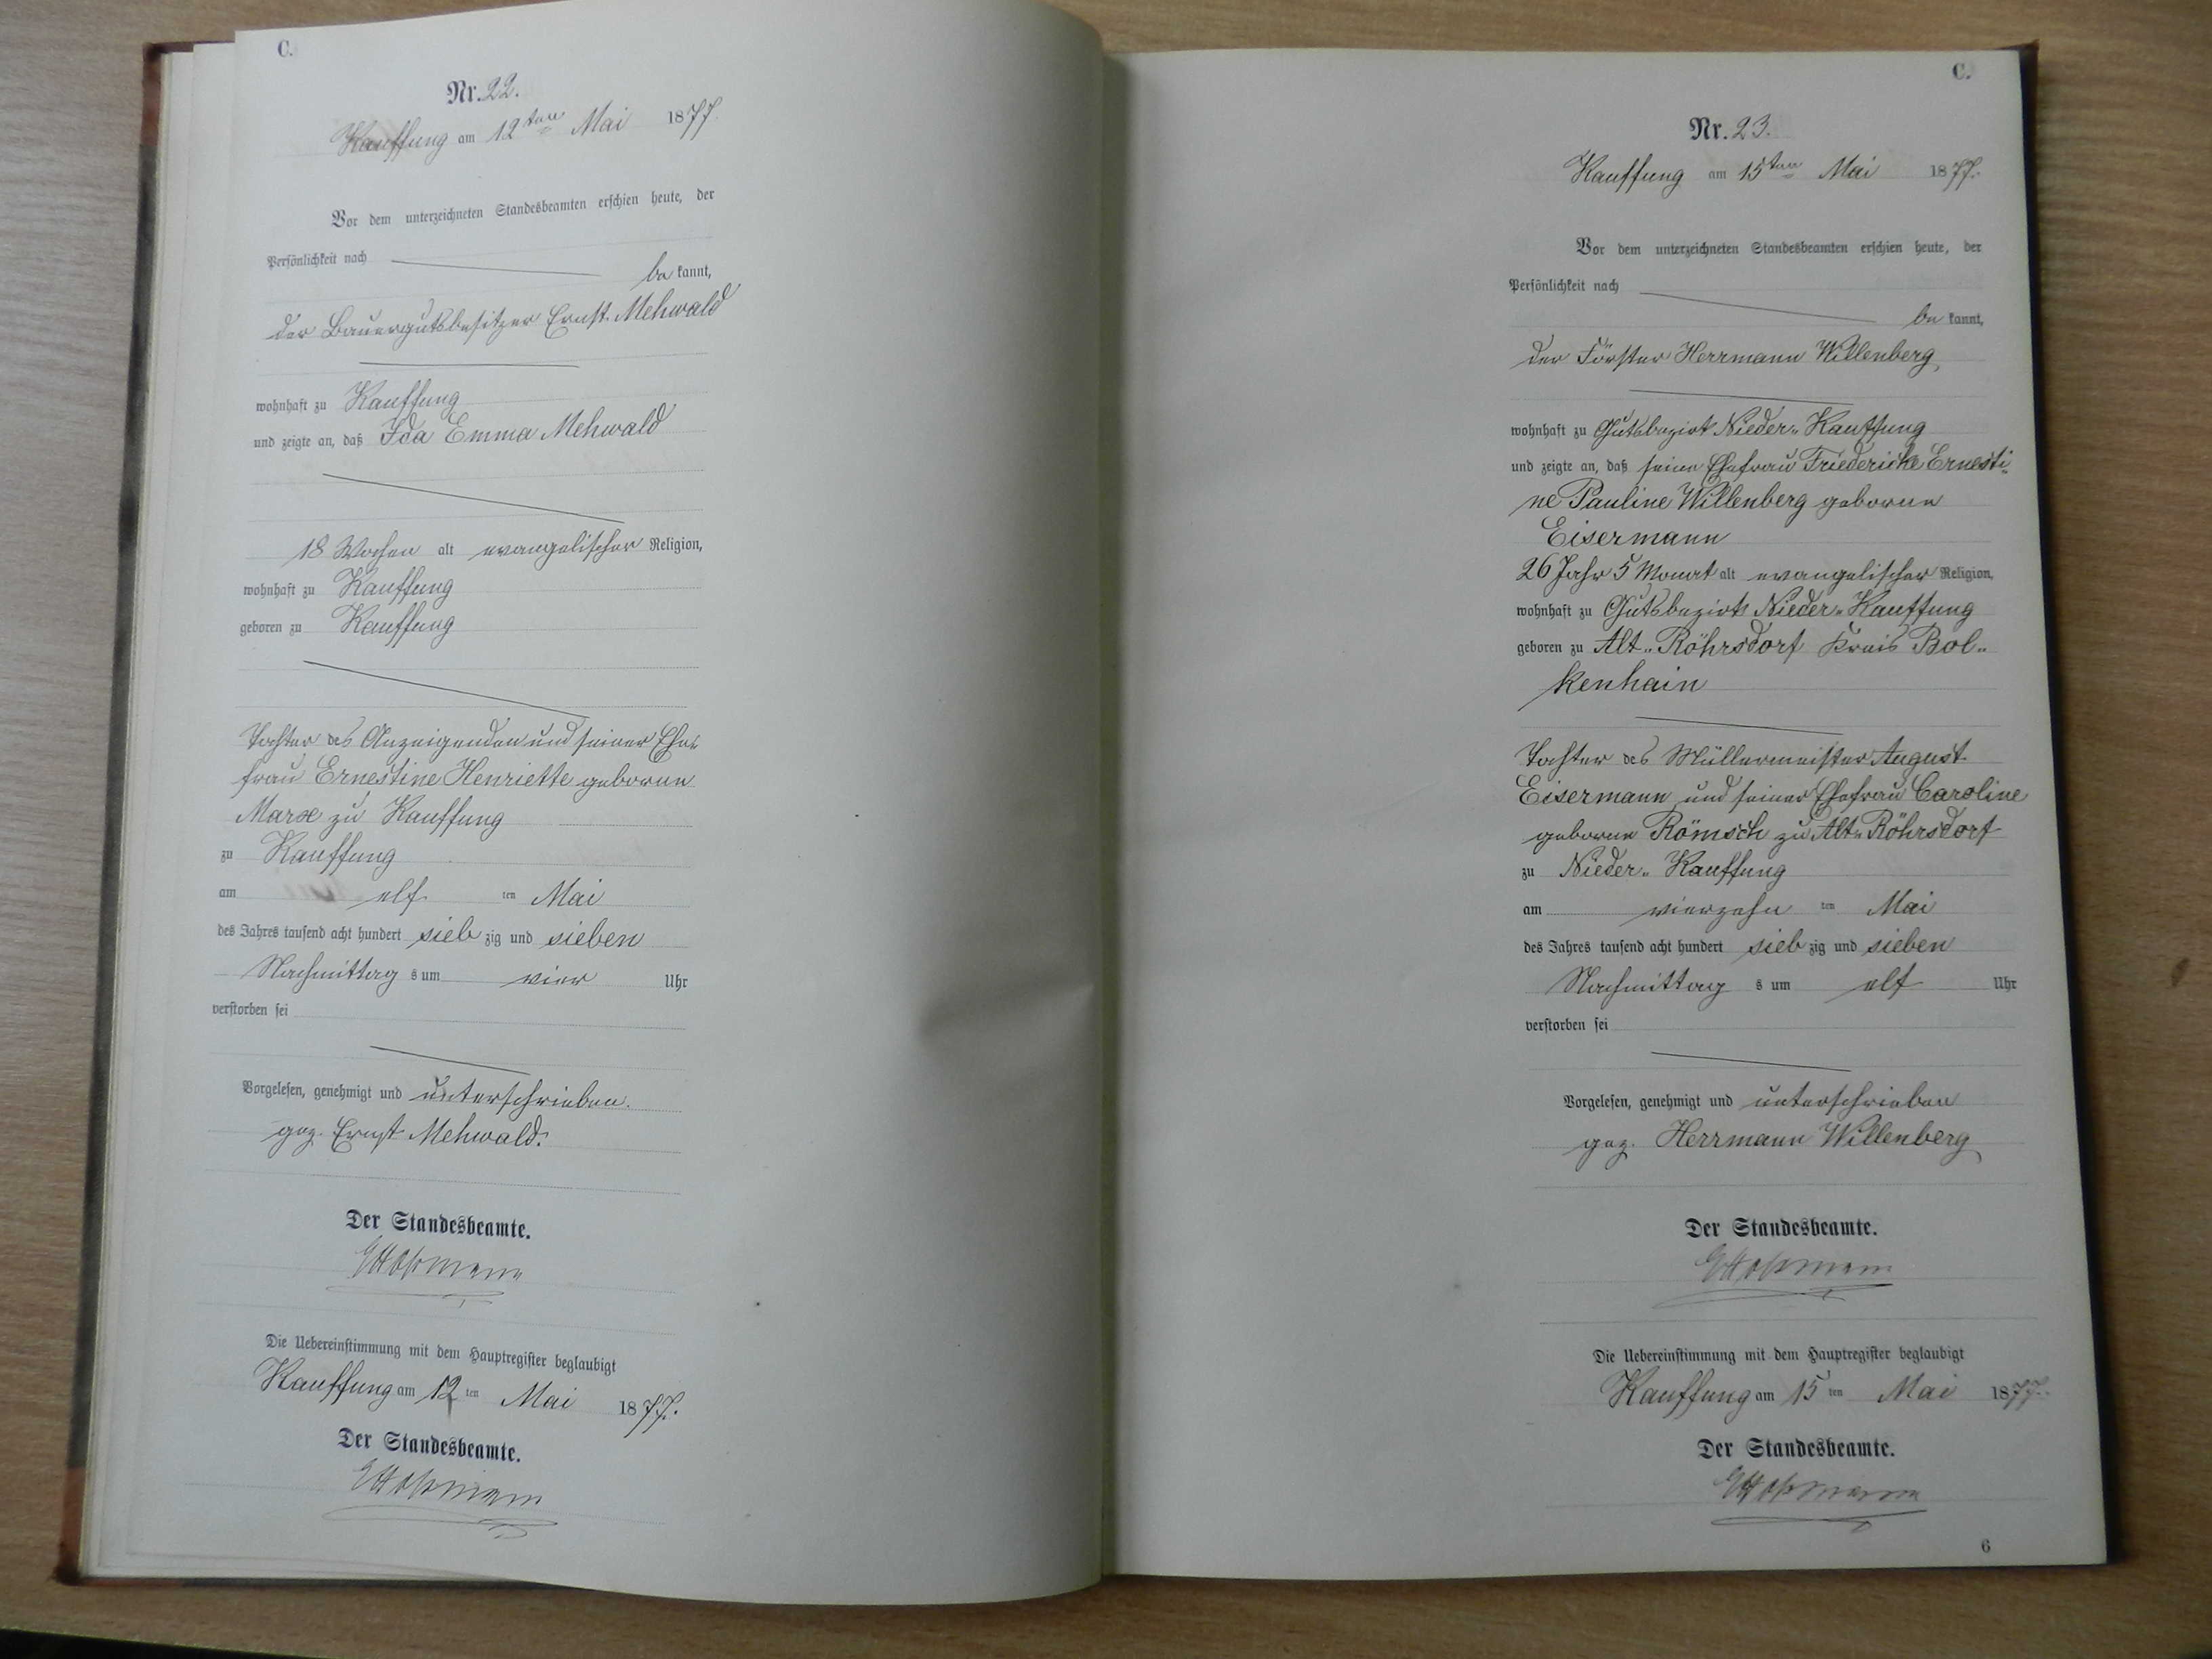 C.
Nr. 22.
Kauffung am 12ten Mai 1877.
Vor dem unterzeichneten Standesbeamten erschien heute, der
Persönlichkeit nach
be kannt,
der Bauergutsbesitzer Ernst Mehwald
wohnhaft zu Kauffung
und zeigte an, daß Ida Emma Mehwald
18 Wochen alt evangelischer Religion,
wohnhaft zu Kauffung
geboren zu Kauffung
Tochter des Anzeigenden und seiner Ehe-
frau Ernestine Henriette geborne
Marx zu Kauffung
zu Kauffung
am elf ten Mai
des Jahres tausend acht hundert sieb zig und sieben
Nachmittag s um vier Uhr
verstorben sei
Vorgelesen, genehmigt und unterschrieben.
gez. Ernst Mehwald.
Der Standesbeamte.
Die Uebereinstimmung mit dem Hauptregister beglaubigt
Kauffung am 12 ten Mai 1877.
Der Standesbeamte.
C.
Nr. 23.
Kauffung am 15ten Mai 1877.
Vor dem unterzeichneten Standesbeamten erschien heute, der
Persönlichkeit nach
be kannt,
der Förster Herrmann Willenberg,
wohnhaft zu Gutsbezirk Nieder-Kauffung
und zeigte an, daß seine Ehefrau Friedericke Ernesti-
ne Pauline Willenberg geborne
Eisermann
26 Jahr 5 Monat alt evangelischer Religion,
wohnhaft zu Gutsbezirk Nieder-Kauffung
geboren zu Alt-Röhrsdorf Kreis Bol-
kenhain
Tochter des Müllermeister August
Eisermann und seiner Ehefrau Caroline
geborne Römsch zu Alt-Röhrsdorf
zu Nieder-Kauffung
am vierzehn ten Mai
des Jahres tausend acht hundert sieb zig und sieben
Nachmittag s um elf Uhr
verstorben sei
Vorgelesen, genehmigt und unterschrieben
gez. Herrmann Willenberg
Der Standesbeamte.
Die Uebereinstimmung mit dem Hauptregister beglaubigt
Kauffung am 15 ten Mai 1877.
Der Standesbeamte.
6